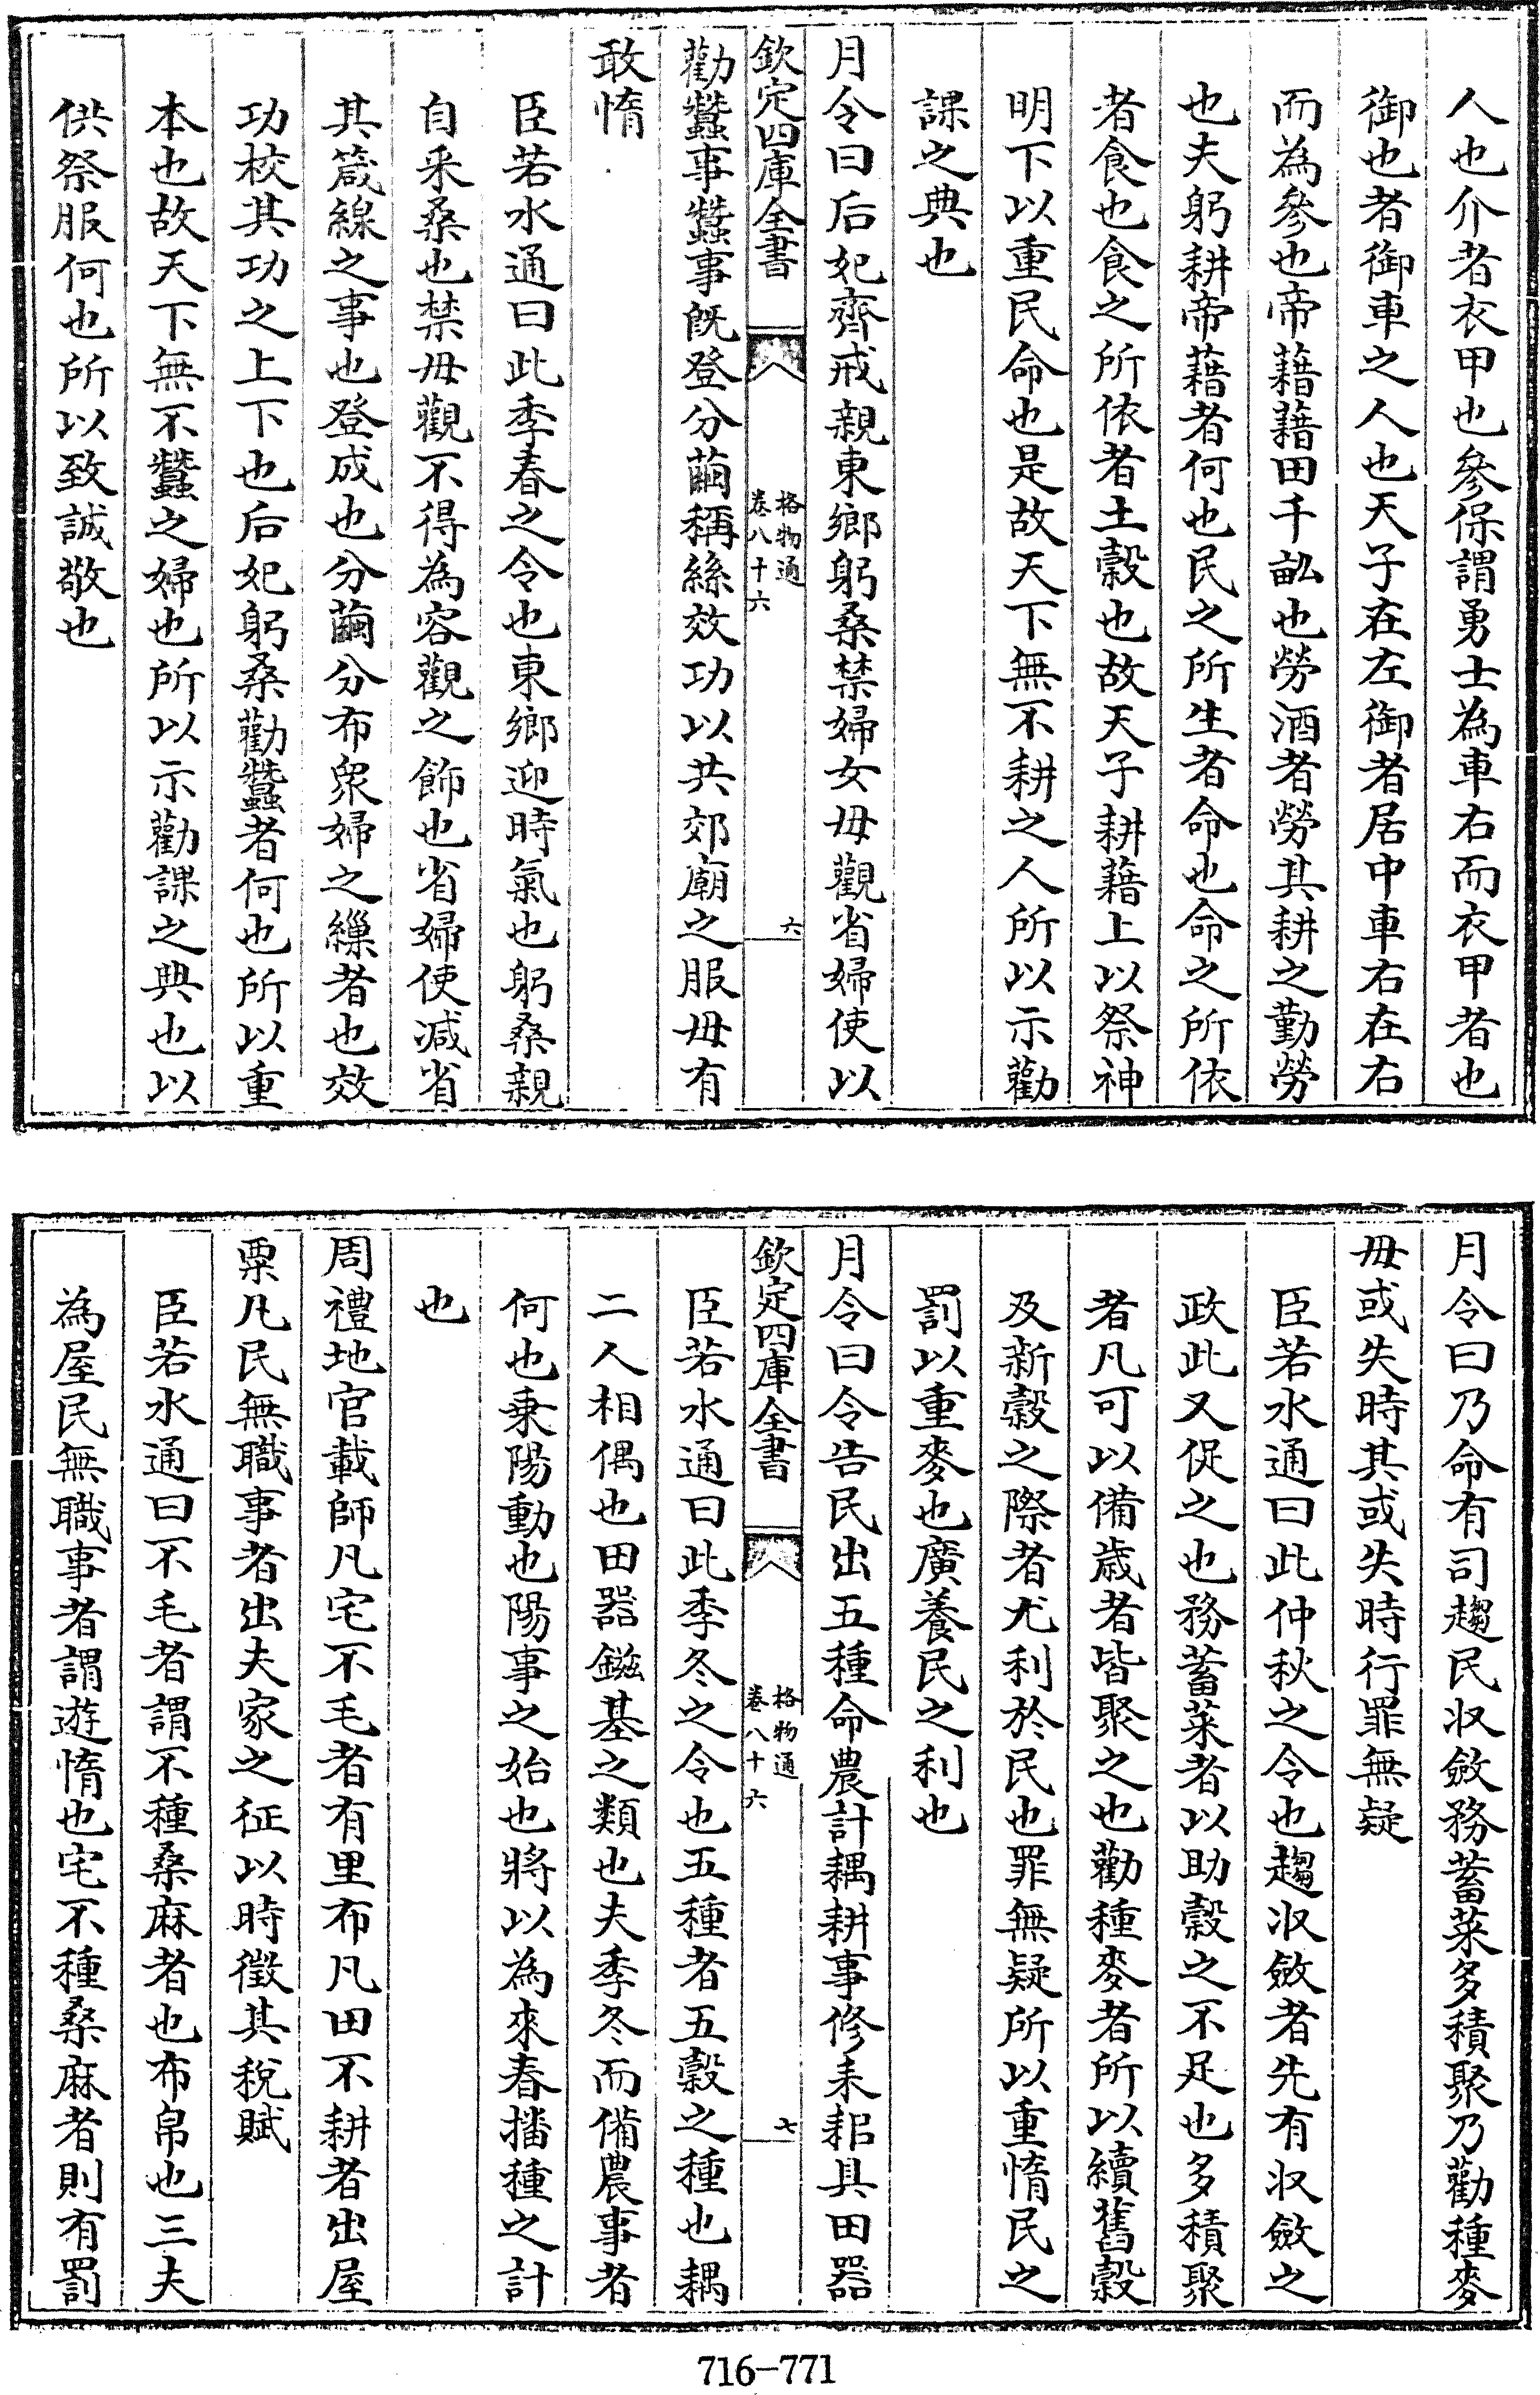 人也介者衣甲也參保謂勇士為車右而衣甲者也
御也者御車之人也天子在左御者居中車右在右
而為參也帝藉藉田千畝也勞酒者勞其耕之勤勞
也夫躬耕帝藉者何也民之所生者命也命之所依
者食也食之所依者土榖也故天子耕藉上以祭神
明下以重民命也是故天下無不耕之人所以示勸
課之典也
月令曰后妃齊戒親東鄉躬桑禁婦女毋觀省婦使以
欽定四庫全書
格物通
卷八十六
六
勸蠶事蠶事既登分繭稱絲效功以共郊廟之服毋有
敢惰
臣若水通曰此季春之令也東鄉迎時氣也躬桑親
自采桑也禁毋觀不得為容觀之飾也省婦使减省
其箴線之事也登成也分繭分布衆婦之繅者也效
功校其功之上下也后妃躬桑勸蠶者何也所以重
本也故天下無不蠶之婦也所以示勸課之典也以
供祭服何也所以致誠敬也
月令曰乃命有司趨民收斂務蓄菜多積聚乃勸種麥
毋或失時其或失時行罪無疑
臣若水通曰此仲秋之令也趨收斂者先有收斂之
政此又促之也務蓄菜者以助榖之不足也多積聚
者凡可以備歳者皆聚之也勸種麥者所以續舊榖
及新榖之際者尤利於民也罪無疑所以重惰民之
罰以重麥也廣養民之利也
月令曰令告民出五種命農計耦耕事修耒耜具田器
欽定四庫全書
格物通
卷八十六
七
臣若水通曰此季冬之令也五種者五榖之種也耦
二人相偶也田器鎡基之類也夫季冬而備農事者
何也乗陽動也陽事之始也將以為來春播種之計
也
周禮地官載師凡宅不毛者有里布凡田不耕者出屋
粟凡民無職事者出夫家之征以時徴其稅賦
臣若水通曰不毛者謂不種桑麻者也布帛也三夫
為屋民無職事者謂遊惰也宅不種桑麻者則有罰
716-771